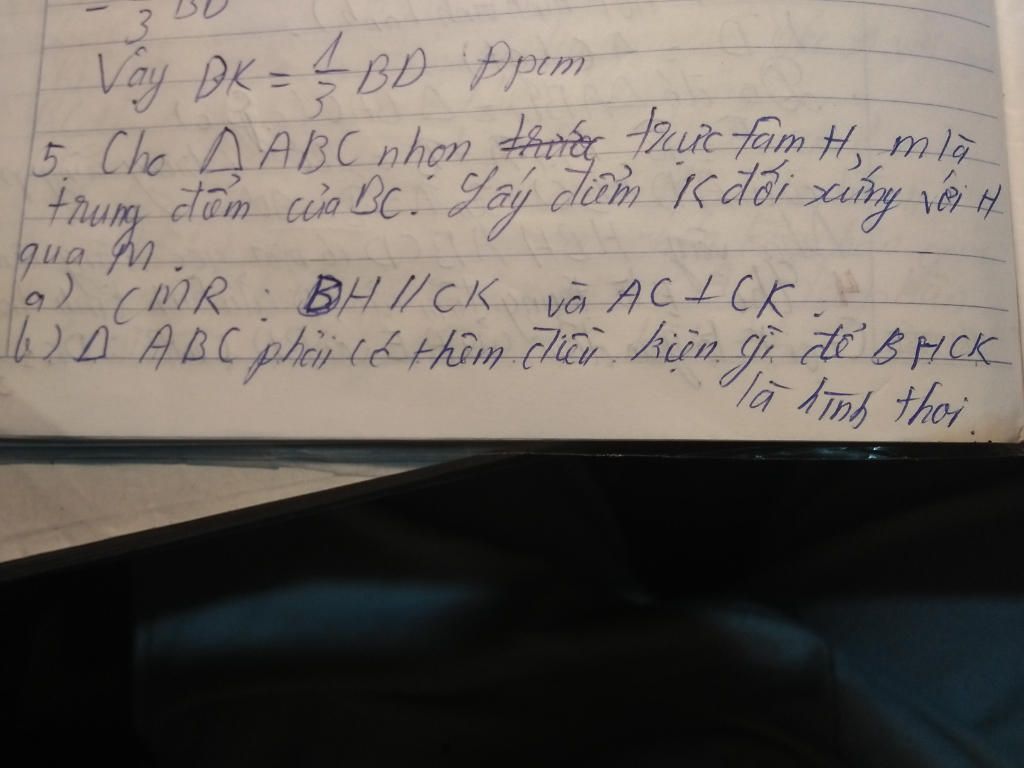 - 3 BD
Vây BK = 1/3 BD Đpcm
5. Cho Δ ABC nhọn trực tâm H, m là
trung điểm của BC. Lấy điểm K đối xứng với H
qua M.
a) CMR : BH // CK và AC ⊥ CK.
b) Δ ABC phải có thêm điều kiện gì để BHCK
là hình thoi.